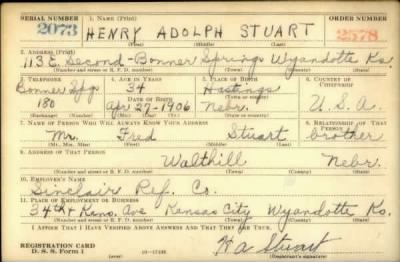 SERIAL NUMBER 1. NAME (Print) ORDER NUMBER
2073 HENRY ADOLPH STUART 2578
(First) (Middle) (Last)
2. ADDRESS (Print)
113 E. Second - Bonner Springs Wyandotte Ks.
(Number and street or R. F. D. number) (Town) (County) (State)
3. TELEPHONE 4. AGE IN YEARS 5. PLACE OF BIRTH 6. COUNTRY OF CITIZENSHIP
Bonner Spgs 34 Hastings
DATE OF BIRTH (Town or county)
180 Apr 27-1906 Nebr. U.S.A.
(Exchange) (Number) (Mo.) (Day) (Yr.) (State or country)
7. NAME OF PERSON WHO WILL ALWAYS KNOW YOUR ADDRESS 8. RELATIONSHIP OF THAT PERSON
Mr. Fred Stuart brother
(Mr., Mrs., Miss) (First) (Middle) (Last)
9. ADDRESS OF THAT PERSON
Walthill Nebr.
(Number and street or R. F. D. number) (Town) (County) (State)
10. EMPLOYER'S NAME
Sinclair Ref. Co.
11. PLACE OF EMPLOYMENT OR BUSINESS
34th & Kans. Ave Kansas City Wyandotte Ks.
(Number and street or R. F. D. number) (Town) (County) (State)
I AFFIRM THAT I HAVE VERIFIED ABOVE ANSWERS AND THAT THEY ARE TRUE.
REGISTRATION CARD
D. S. S. Form 1 (over) H A Stuart
(Registrant's signature)